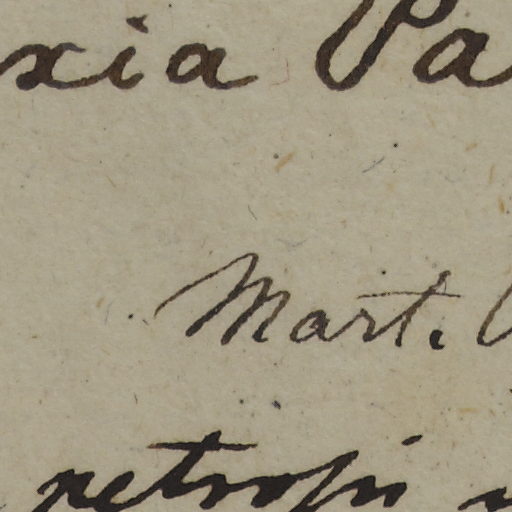 xia Pa
Mart.
petrosi